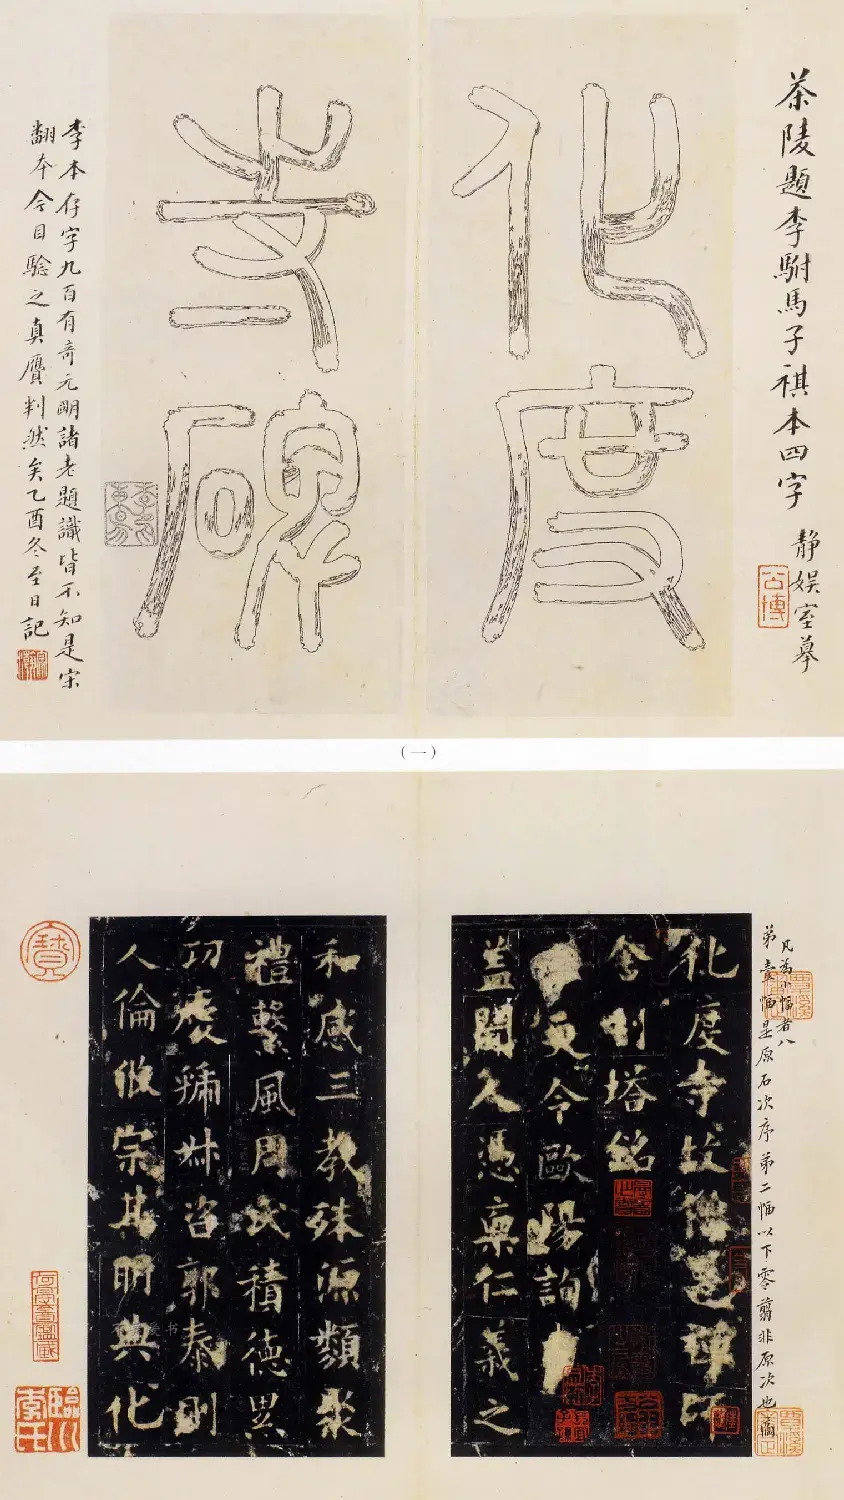 茶陵題李駙馬子祺本四字 靜娛室摹
公博
化度
寺碑
李本存字九百有奇元明諸老題識皆不知是宋
翻本今目驗之真贗判然矣乙酉冬至日記
(一)
凡為小幅者八
第壹幅是原石次序第二幅以下零翦非原次也
化度寺故僧邕禪師
舍利塔銘
更令歐陽詢
蓋聞人憑稟仁義之
和感三教殊源類聚
禮繫風周積德異
功咨郭泰則
人倫攸宗其明典化
寶
臨川李氏